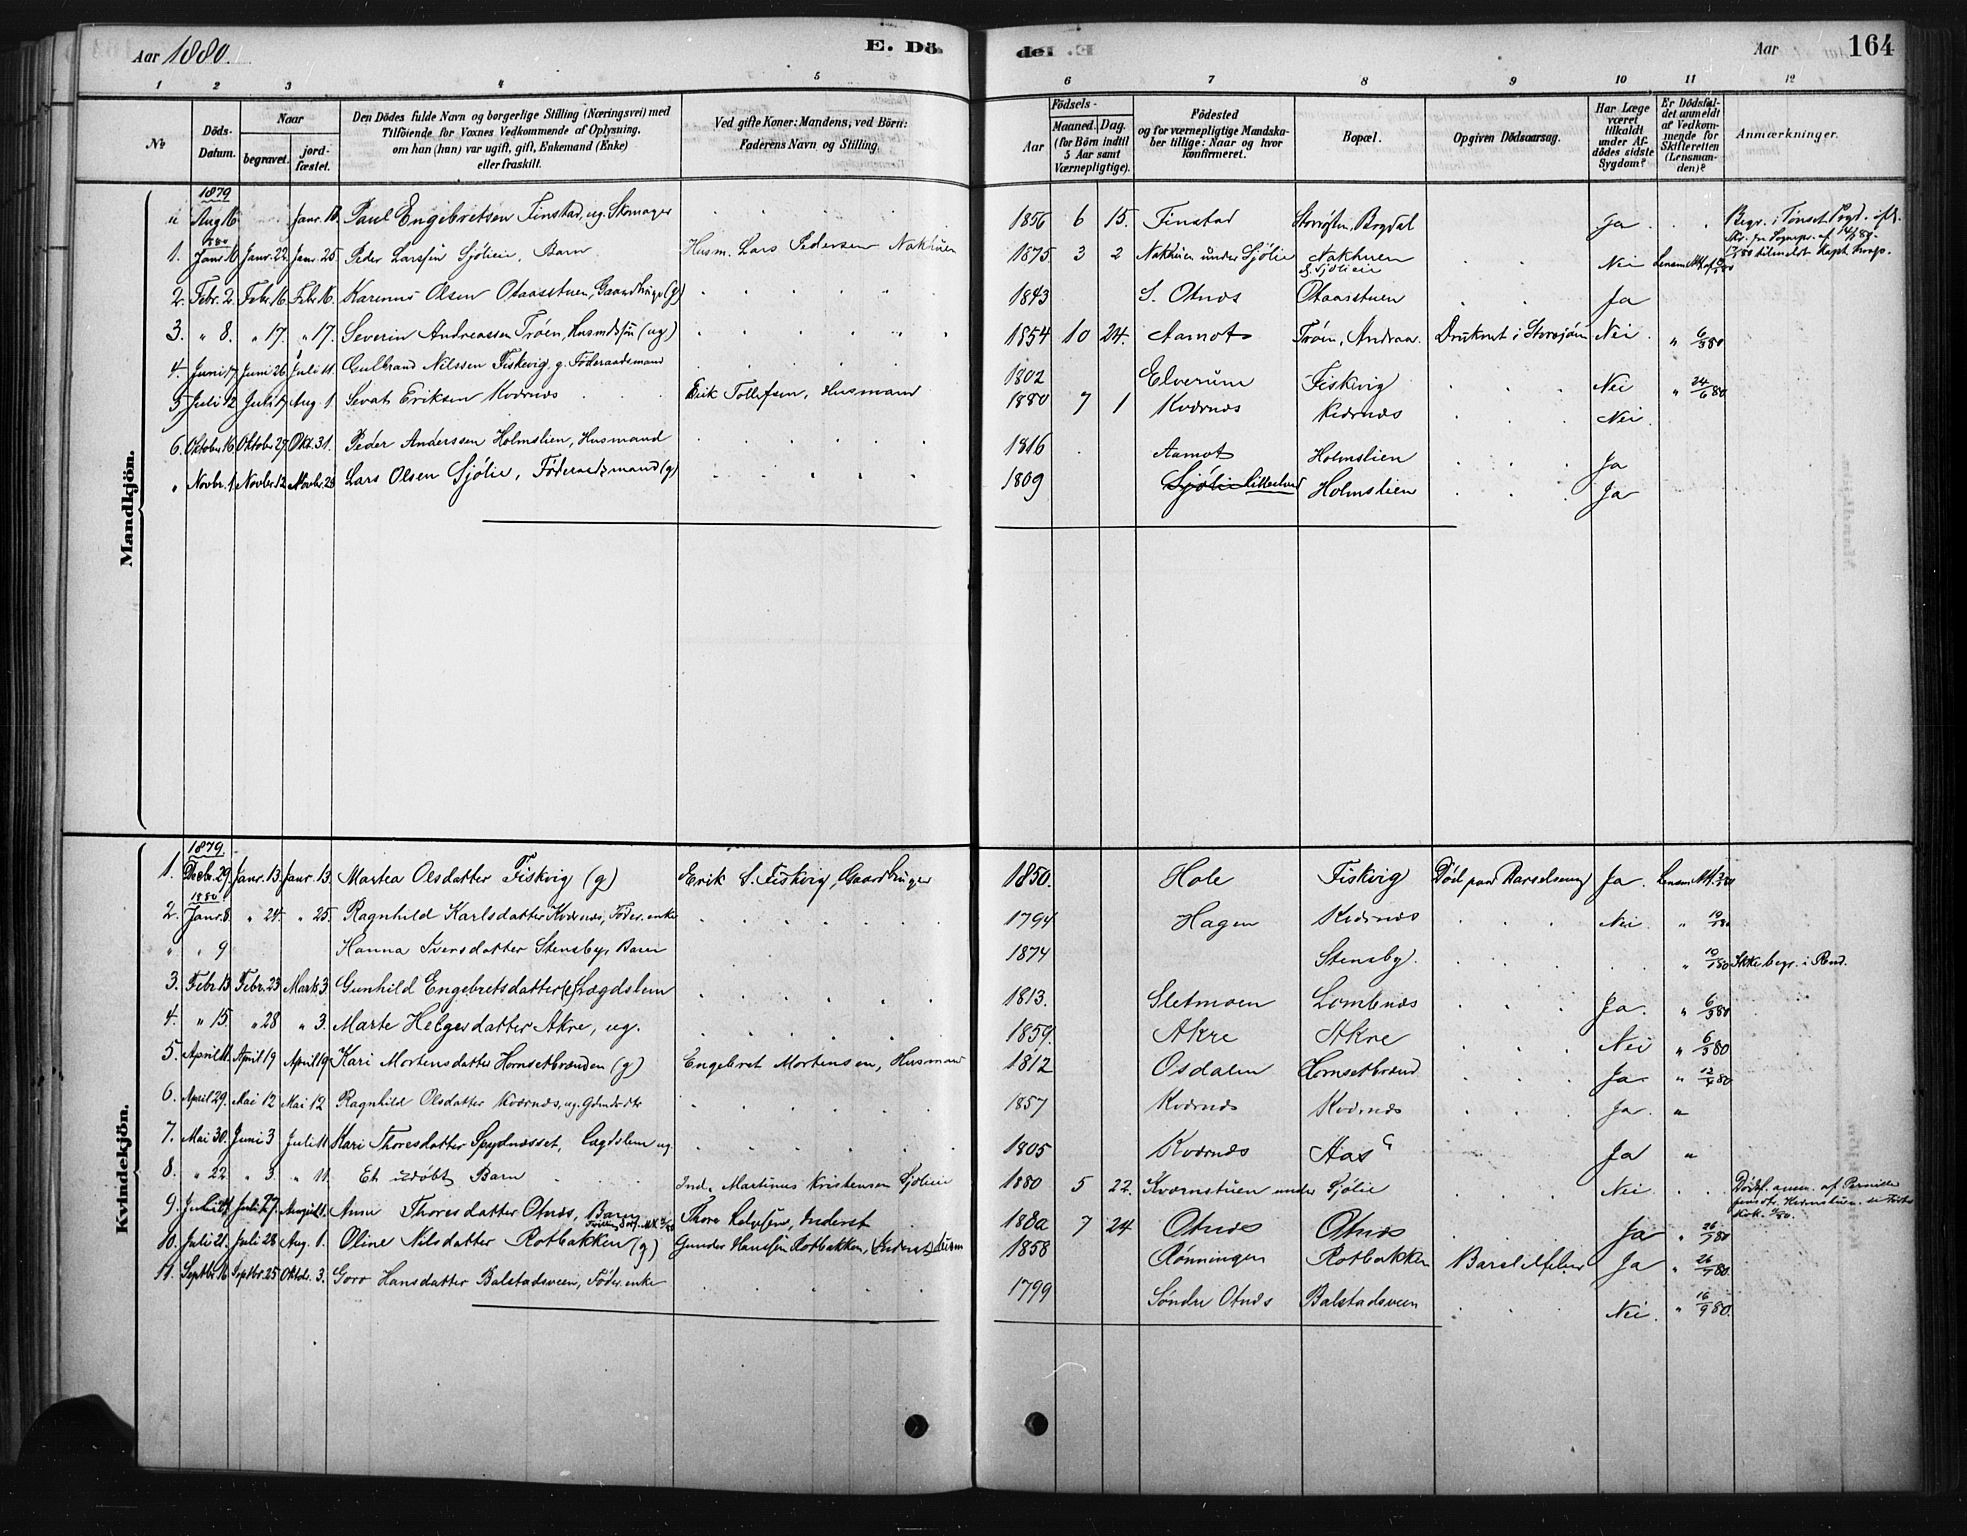 Aar 1880. E. Dö- del. E Aar 164
1 2 3 4 5 6 7 8 9 10 11 12
No Döds-Datum. Naar begravet. jord-fæstet.
Den Dödes fulde Navn og borgerlige Stilling (Næringsvei) med Tilföiende for Voxnes Vedkommende af Oplysning. om han (hun) var ugift, gift, Enkemand (Enke) eller fraskilt.
Ved gifte Koner: Mandens, ved Börn: Faderens Navn og Stilling.
Födsels- Aar Maaned. Dag. (for Börn indtil 5 Aar samt Værnepligtige).
Födested og for værnepligtige Mandskaber tillige: Naar og hvor konfirmeret.
Bopæl.
Opgiven Dödsaarsag.
Har Læge været tilkaldt under Afdödes sidste Sygdom?
Er Dödsfaldet anmeldt af Vedkommende for Skifteretten (Lensmanden)?
Anmærkninger.
Mandkjön.
1879
" Aug 16 Janr. 18. Paul Engebretsen Finstad, ug. Skomager 1856 6 15. Finstad Ja Begr. i Tønset
1880
1. Janr. 16 Janr. 22. Janr. 25. Peder Larssen Sjölieie, Barn Husm. Lars Pedersen Nakkuen 1875 3 2 Nakkuen under Sjölie Nakkuen Sjölieie Nei
2. Febr. 2. Febr. 16 Febr. 16. Karenus Olsen Otaasstuen, Gaardbruger (g) 1843 S. Otnes Otaasstuen Ja
3. " 8. " 17. " 17. Severin Andreassen Trøen, Husmdssøn (ug) 1854 10 24. Aamot Trøen, Andraa Druknet i Storsjøen Nei " 6/3 80
4. Juni 17 Juni 26 Juli 11. Gulbrand Nilssen Fiskvig, g. Föderaadsmand 1802 Elverum Fiskvig Nei " 24/6 80
5. Juli 12 Juli 17 Aug. 1 Sevat Eriksen Kværnes Erik Tollefsen, Husmand 1880 7 1 Kværnes Kværnes Nei.
6. Oktober 16. Oktober 29. Okt. 31. Peder Anderssen Holmslien, Husmand 1816 Aamot Holmslien Ja
" Novbr. 1. Novbr. 12. Novbr. 28 Lars Olsen Sjölie, Föderaadsmand (g) 1809 Sjölie Holmslien Ja
Kvindekjön.
1879.
1. Decbr. 29. Janr. 13. Janr. 13. Martea Olsdatter Fiskvig (g) Erik S. Fiskvig, Gaardbruger 1850. Hole Fiskvig Död paa Barselseng Ja.
1880
2. Janr. 8. " 24. " 25. Ragnhild Karlsdatter Kværnes, Föder. enke 1794 Hagen Kværnes Nei.
" " 9 Hanna Iversdatter Stensby, Barn 1874 Stensby. Ikke begr. i Rend.
3. Febr. 13 Febr. 23 Marts 3. Gunhild Engebretsdatter (e) Lægdslem 1813. Sletmoen Lomknes Ja. " 6/3 80
4. " 15. " 28 " 3. Marte Helgesdatter Akre, ug. 1859. Akre Akre Nei " 6/3 80
5. April 11. April 19 April 19 Kari Mortensdatter Hornsetbrænden (g) Engebret Mortensen, Husmand 1812 Osdalen Hornsetbrænd Ja. " 12/4 80
6. April 29. Mai 12 Mai 12 Ragnhild Olsdatter Kværnes, ug. 1857 Kværnes Kværnes Ja. "
7. Mai 30. Juni 3 Juli 11 Kari Thoresdatter Spydnæsset, Lægdslem ug. 1805 Kværnes Aas Ja "
8. " 22. " 3. " 11. Et udøbt Barn Ind. Martinus Kristensen Sjölieie 1880 5 22. Kværnstuen under Sjölie Nei.
9. Juli Juli 17 August 1. Anne Thoresdatter Otnes, Barn Thore Inderst 1880 7 24 Otnes Otnes Ja " 26/7 80
10. Juli 21. Juli 28 Aug. 1. Oline Nilsdatter Rotbakken (g) Gunder Hanssen Rotbakken, 1858 Rønningen Rotbakken Barselfeber Ja " 26/7 80.
11. Septbr. 16 Septbr. 25 Oktbr. 3. Goro Hansdatter Balstadsveen, Föder. enke 1799 Søndre Otnes Balstadsveen Nei. " 16/9 80.